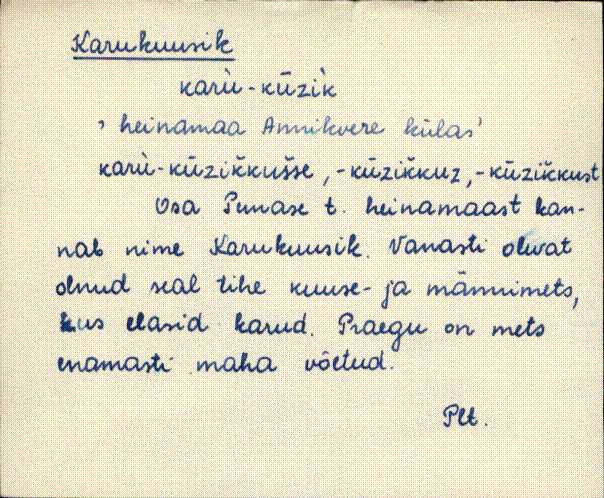 Karukuusik
karù-kūzìk
, heinamaa Annikvere külas'
karù-kūzik̆kušse, -kūzik̆kuz, -kūzik̆kust
Osa Punase t. heinamaast kan-
nab nime Karukuusik. Vanasti olivat
olnud seal tihe kuuse- ja männimets,
kus elasid karud. Praegu on mets
enamasti maha võetud.
Plt.